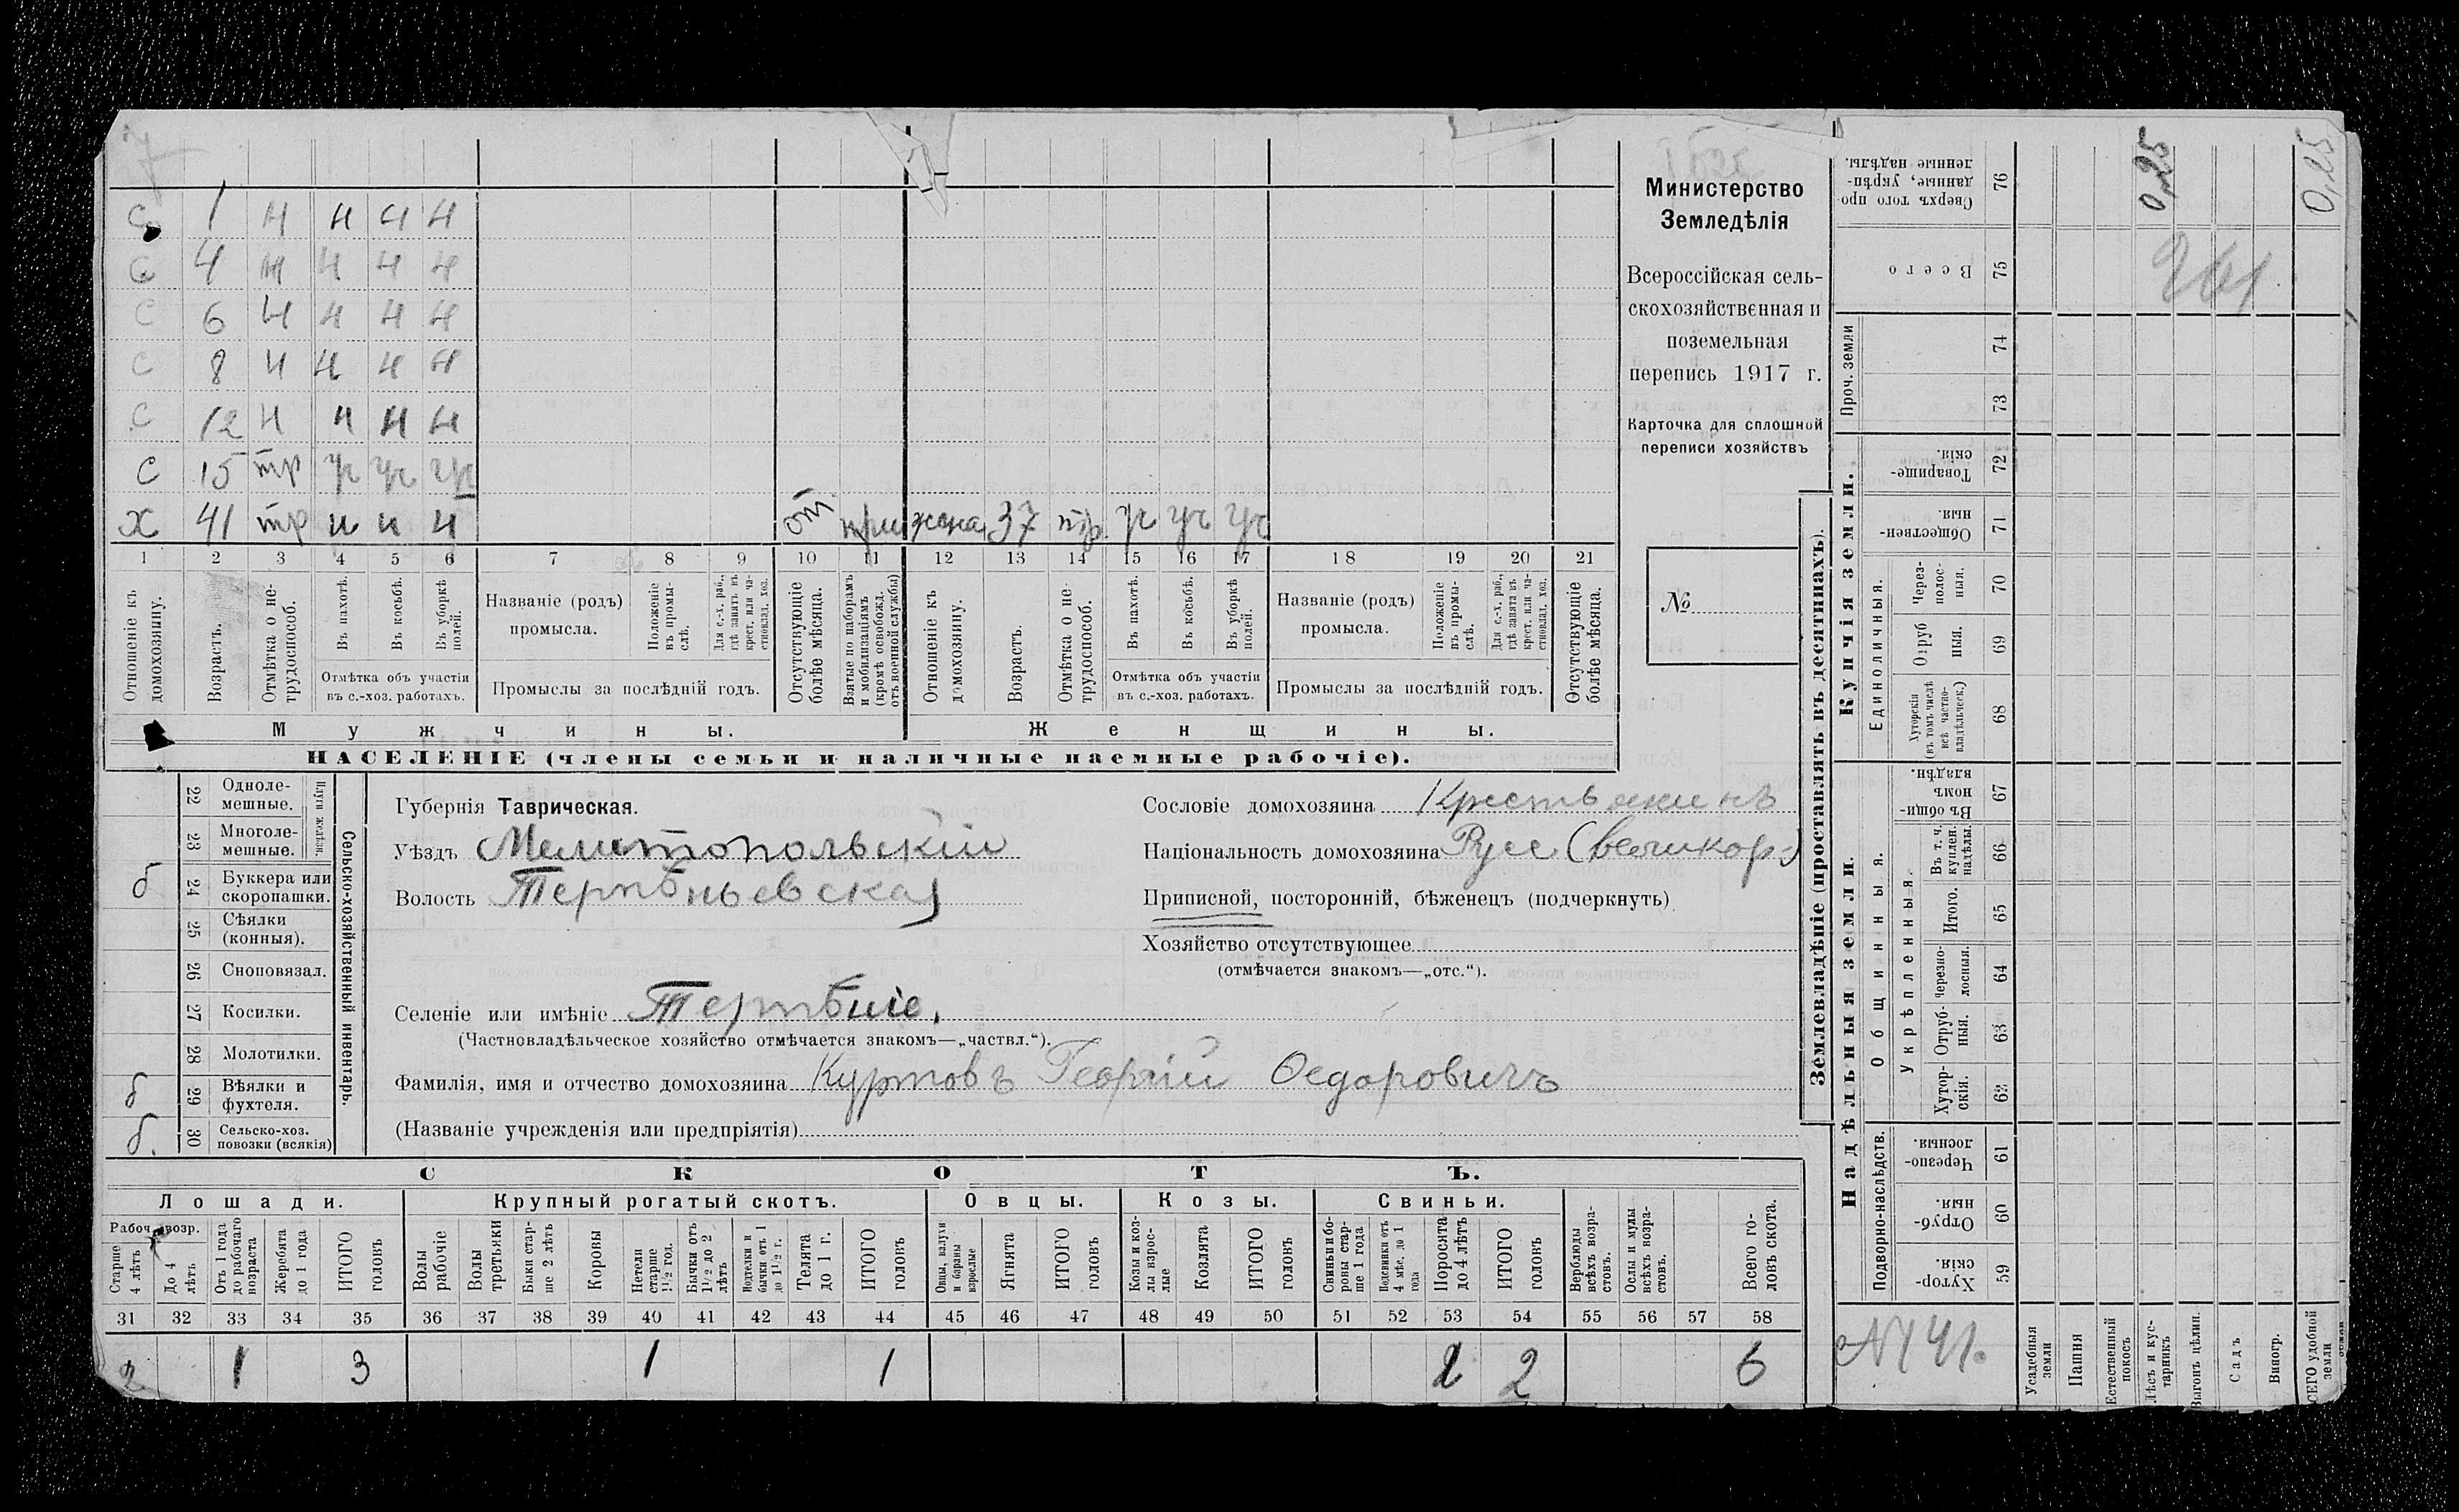 С 1 н н н н
С 4 н н н н
С 6 н н н н
С 8 н н н н
С 12 н н н н
С 15 тр уч уч уч
Х 41 тр н н н от. при жена 37 тр. уч уч уч
1 2 3 4 5 6 7 8 9 10 11 12 13 14 15 16 17 18 19 20 21
Отношеніе къ домохозяину.
Возрастъ.
Отмѣтка о не-трудоспособ.
Въ пахотѣ.
Въ косьбѣ.
Въ уборкѣ полей.
Отмѣтка объ участіи
въ с.-хоз. работахъ.
Названіе (родъ)
промысла.
Положеніе въ промы-слѣ.
Для с.-х. раб., гдѣ занятъ въ крест. или ча-стновлад. хоз.
Промыслы за послѣдній годъ.
Отсутствующіе болѣе мѣсяца.
Взятые по наборамъ и мобилизаціямъ (кромѣ освобожд. отъ военной службы)
Отношеніе къ домохозяину.
Возрастъ.
Отмѣтка о не-трудоспособ.
Въ пахотѣ.
Въ косьбѣ.
Въ уборкѣ полей.
Отмѣтка объ участіи
въ с.-хоз. работахъ.
Названіе (родъ)
промысла.
Положеніе въ промы-слѣ.
Для с.-х. раб., гдѣ занята въ крест. или ча-стновлад. хоз.
Промыслы за послѣдній годъ.
Отсутствующіе болѣе мѣсяца.
Мужчины. Женщины.
НАСЕЛЕНІЕ (члены семьи и наличные наемные рабочіе).
Министерство
Земледѣлія
Всероссійская сель-
скохозяйственная и
поземельная
перепись 1917 г.
Карточка для сплошной
переписи хозяйствъ
№
Сельско-хозяйственный инвентарь.
Плуги желѣзн.
22 Одноле-мешные.
23 Многоле-мешные.
б 24 Буккера или скоропашки.
25 Сѣялки (конныя).
26 Сноповязал.
27 Косилки.
28 Молотилки.
б 29 Вѣялки и фухтеля.
б. 30 Сельско-хоз. повозки (всякія)
Губернія Таврическая.
Уѣздъ Мелитопольскій
Волость Терпѣньевская
Селеніе или имѣніе Терпѣніе.
(Частновладѣльческое хозяйство отмѣчается знакомъ—„частвл.“).
Фамилія, имя и отчество домохозяина Куртовъ Георгій Федоровичъ
(Названіе учрежденія или предпріятія)
Сословіе домохозяина Крестьянинъ
Національность домохозяина Русс (великор.)
Приписной, посторонній, бѣженецъ (подчеркнуть)
Хозяйство отсутствующее
(отмѣчается знакомъ—„отс.“).
СКОТЪ.
Лошади. Крупный рогатый скотъ. Овцы. Козы. Свиньи.
Рабоч. возр.
Старше 4 лѣтъ
До 4 лѣтъ
Отъ 1 года до рабочаго возраста
Жеребята до 1 года
ИТОГО головъ
Волы рабочіе
Волы третьяки
Быки стар-ше 2 лѣтъ
Коровы
Нетели старше 1½ год.
Бычки отъ 1½ до 2 лѣтъ
Подтелки и бычки отъ 1 до 1½ г.
Телята до 1 г.
ИТОГО головъ
Овцы, валухи и бараны взрослые
Ягнята
ИТОГО головъ
Козы и коз-лы взрос-лые
Козлята
ИТОГО головъ
Свиньи и бо-ровы стар-ше 1 года
Подсвинки отъ 4 мѣс. до 1 года
Поросята до 4 лѣтъ
ИТОГО головъ
Верблюды всѣхъ возра-стовъ.
Ослы и мулы всѣхъ возра-стовъ.
Всего го-ловъ скота.
31 32 33 34 35 36 37 38 39 40 41 42 43 44 45 46 47 48 49 50 51 52 53 54 55 56 57 58
2 1 3 1 1 2 2 6
Землевладѣніе (проставлять въ десятинахъ).
Купчія земли.
Надѣльныя земли.
Сверхъ того про-данные, укрѣп-ленные надѣлы. 76
Всего 75
Проч. земли 74 73
Товарище-скія. 72
Обществен-ныя. 71
Единоличныя.
Через-полос-ныя. 70
Отруб ныя. 69
Хуторскія (въ томъ числѣ всѣ частно-владѣльческ.) 68
Общинныя.
Въ общи-номъ владѣн. 67
Укрѣпленныя.
Въ т. ч. куплен. надѣлы. 66
Итого. 65
Черезпо-лосныя. 64
Отруб-ныя. 63
Хутор-скія. 62
Подворно-наслѣдств.
Черезпо-лосныя. 61
Отруб-ныя. 60
Хутор-скія. 59
0,25
0,25
261
№ 41.
Усадебныя земли
Пашня
Естественный покосъ
Лѣсъ и кус-тарникъ
Выгонъ цѣлин.
Садъ
Виногр.
ВСЕГО удобной земли